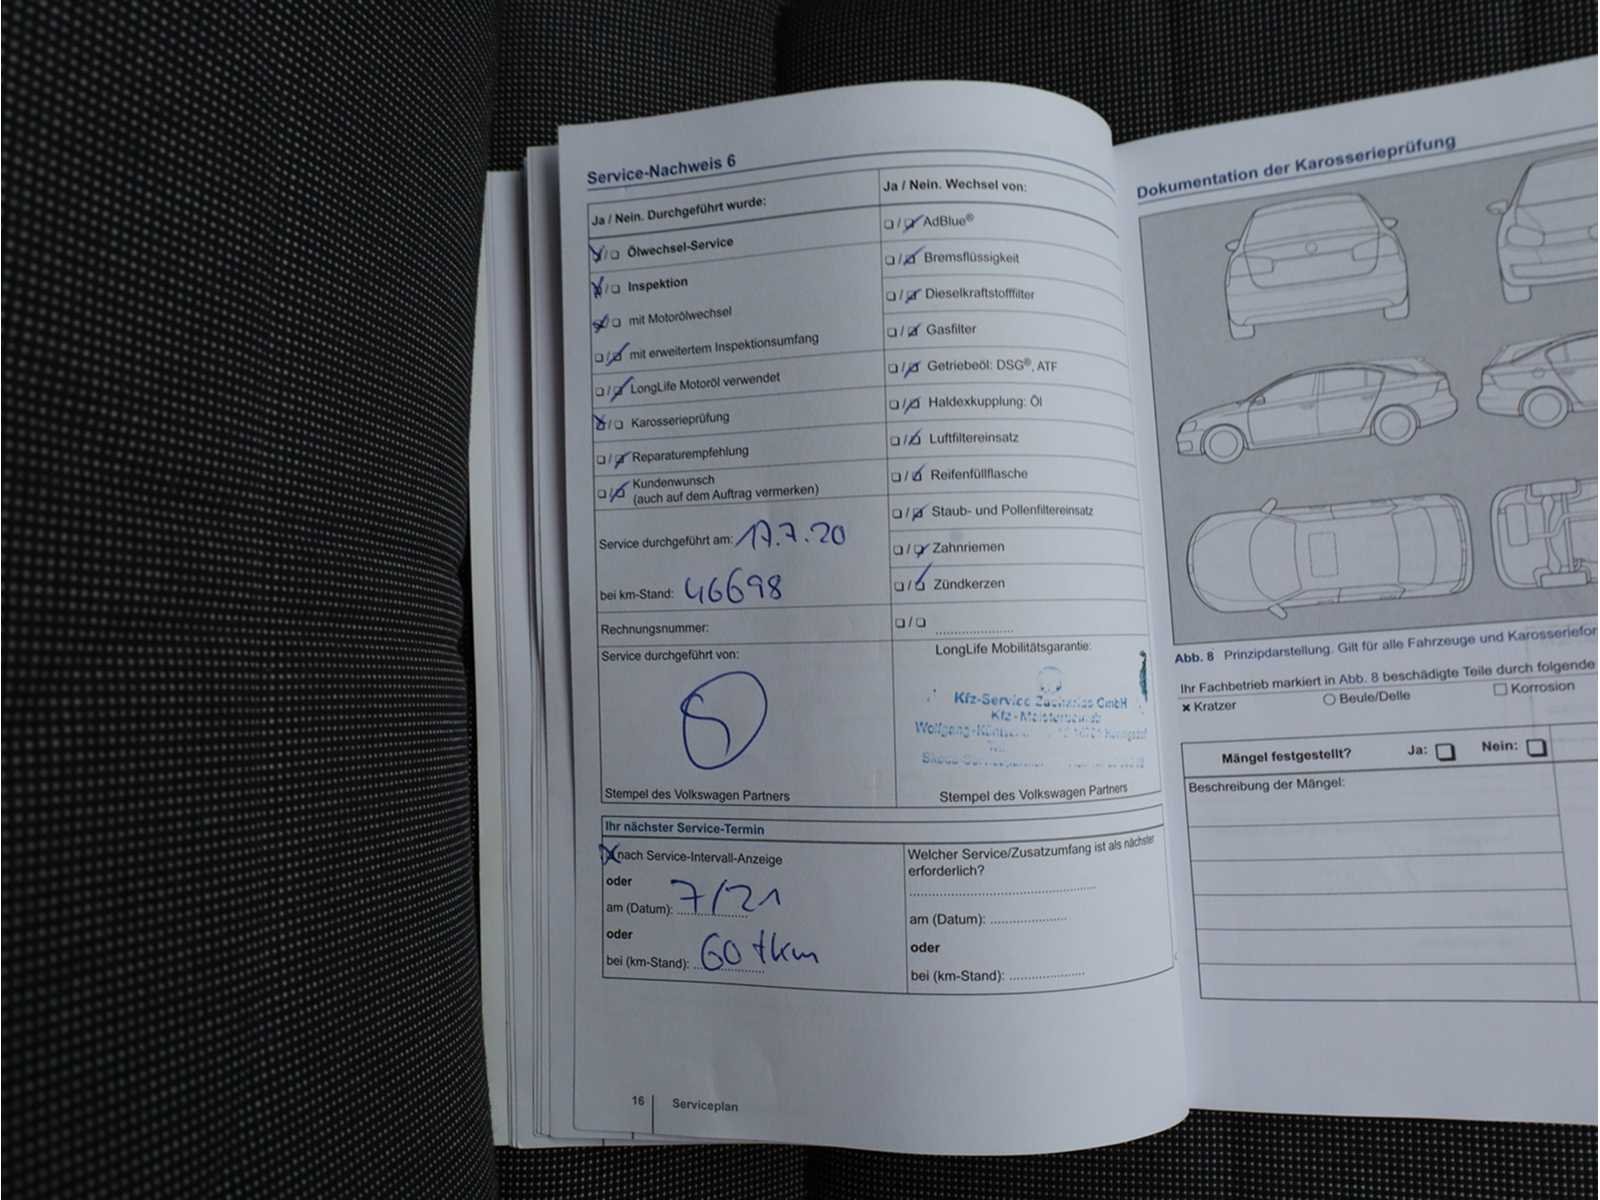 Service-Nachweis 6
Ja / Nein. Durchgeführt wurde:
☒/☐ Ölwechsel-Service
☒/☐ Inspektion
☒/☐ mit Motorölwechsel
☐/☒ mit erweitertem Inspektionsumfang
☐/☒ LongLife Motoröl verwendet
☒/☐ Karosserieprüfung
☐/☒ Reparaturempfehlung
☐/☒ Kundenwunsch
(auch auf dem Auftrag vermerken)
Service durchgeführt am: 17.7.20
bei km-Stand: 46698
Rechnungsnummer:
Service durchgeführt von:
Stempel des Volkswagen Partners
Ja / Nein. Wechsel von:
☐/☒ AdBlue®
☐/☒ Bremsflüssigkeit
☐/☒ Dieselkraftstofffilter
☐/☒ Gasfilter
☐/☒ Getriebeöl: DSG®, ATF
☐/☒ Haldexkupplung: Öl
☐/☒ Luftfiltereinsatz
☐/☒ Reifenfüllflasche
☐/☒ Staub- und Pollenfiltereinsatz
☐/☒ Zahnriemen
☐/☒ Zündkerzen
☐/☐ ......................
LongLife Mobilitätsgarantie:
Kfz-Service Zacharias GmbH
Kfz-Meisterbetrieb
Stempel des Volkswagen Partners
Ihr nächster Service-Termin
☒ nach Service-Intervall-Anzeige
oder
am (Datum): 7/21
oder
bei (km-Stand): 60 tkm
Welcher Service/Zusatzumfang ist als nächster
erforderlich?
am (Datum): ....................
oder
bei (km-Stand): ....................
16 Serviceplan
Dokumentation der Karosserieprüfung
Abb. 8 Prinzipdarstellung. Gilt für alle Fahrzeuge und Karosseriefor
Ihr Fachbetrieb markiert in Abb. 8 beschädigte Teile durch folgende
✖ Kratzer ○ Beule/Delle ☐ Korrosion
Mängel festgestellt? Ja: ☐ Nein: ☐
Beschreibung der Mängel: